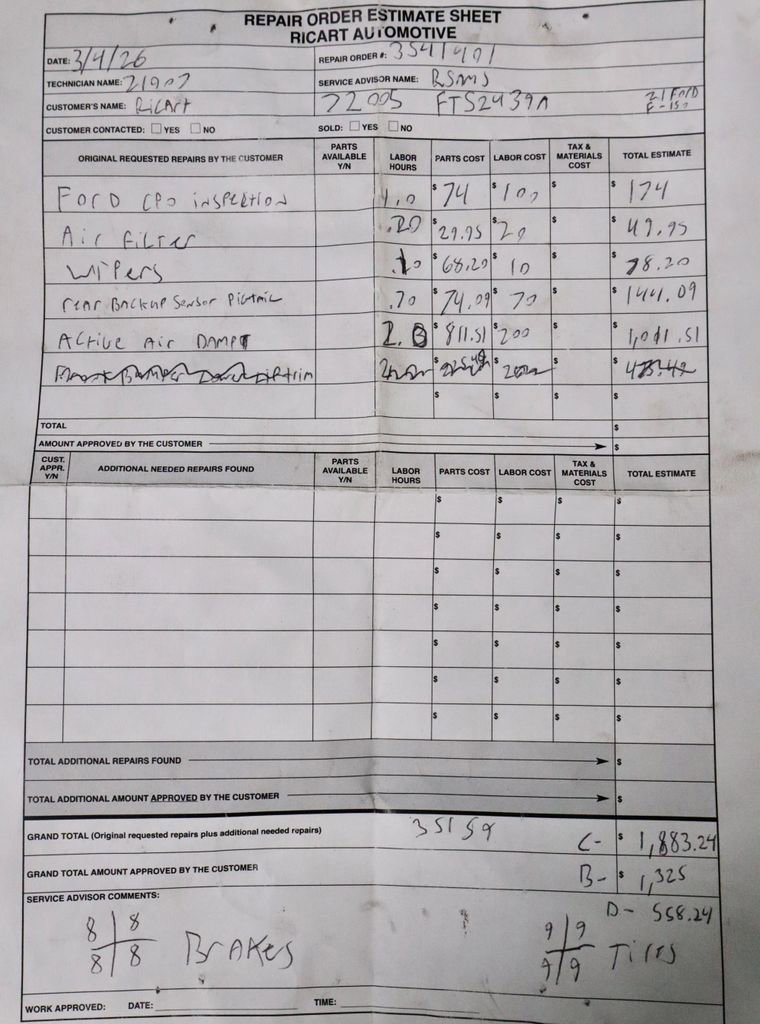 REPAIR ORDER ESTIMATE SHEET
RICART AUTOMOTIVE
DATE: 3/4/26 REPAIR ORDER #: 3541401
TECHNICIAN NAME: 21907 SERVICE ADVISOR NAME:
CUSTOMER'S NAME: RicArt 72005 FTS2439A 21 Ford F-150
CUSTOMER CONTACTED: YES NO SOLD: YES NO
ORIGINAL REQUESTED REPAIRS BY THE CUSTOMER PARTS AVAILABLE Y/N LABOR HOURS PARTS COST LABOR COST TAX & MATERIALS COST TOTAL ESTIMATE
Ford CPO inspection 1.0 $ 74 $ 100 $ $ 174
Air Filter .20 $ 29.95 $ 20 $ $ 49.95
Wipers .10 $ 68.20 $ 10 $ $ 78.20
rear Backup Sensor .70 $ 74.09 $ 70 $ $ 144.09
Active Air DAMPT 2.0 $ 811.51 $ 200 $ $ 1,011.51
$ $ $ $
$ $ $ $
TOTAL $
AMOUNT APPROVED BY THE CUSTOMER $
CUST. APPR. Y/N ADDITIONAL NEEDED REPAIRS FOUND PARTS AVAILABLE Y/N LABOR HOURS PARTS COST LABOR COST TAX & MATERIALS COST TOTAL ESTIMATE
$ $ $ $
$ $ $ $
$ $ $ $
$ $ $ $
$ $ $ $
$ $ $ $
$ $ $ $
TOTAL ADDITIONAL REPAIRS FOUND $
TOTAL ADDITIONAL AMOUNT APPROVED BY THE CUSTOMER $
GRAND TOTAL (Original requested repairs plus additional needed repairs) 35159 C- $ 1,883.24
GRAND TOTAL AMOUNT APPROVED BY THE CUSTOMER B- $ 1,325
SERVICE ADVISOR COMMENTS: D- 558.24
8 8 9 9
8 8 BrAkes 9 9 Tires
WORK APPROVED: DATE: TIME: